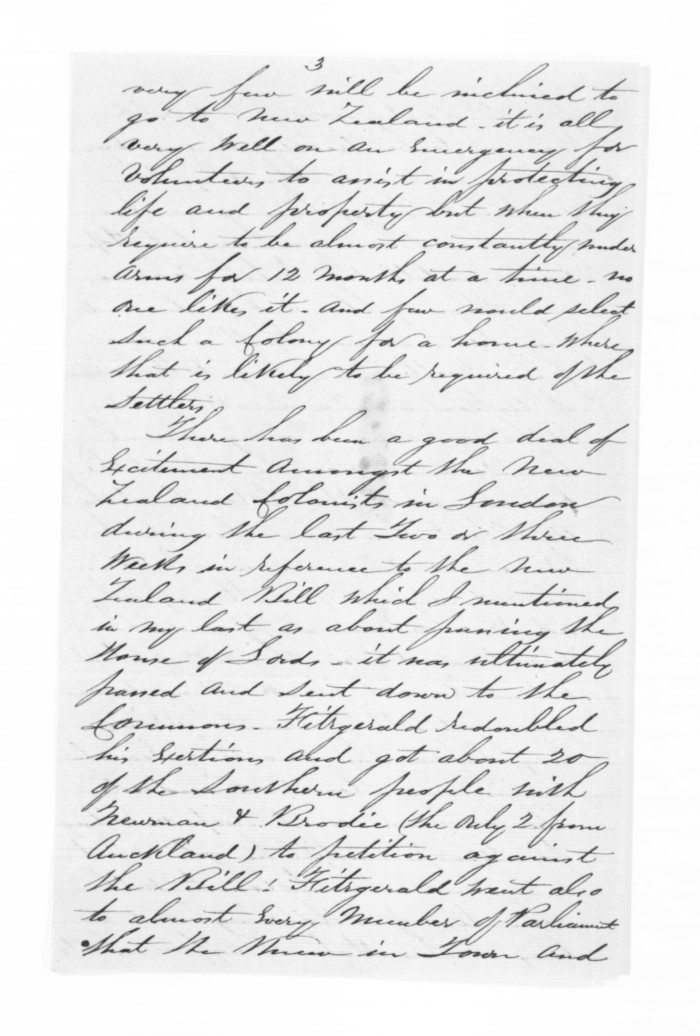 3
very few will be inclined to
go to New Zealand - it is all
very well on an Emergency for
Volunteers to assist in protecting
life and property but when they
require to be almost constantly under
arms for 12 Months at a time - no
one likes it - and few would select
such a Colony for a home - where
that is likely to be required of the
settlers
There has been a good deal of
Excitement amongst the New
Zealand Colonists in London
during the last Two or three
Weeks in reference to the New
Zealand Bill which I mentioned
in my last as about passing the
House of Lords - it was ultimately
passed and sent down to the
Commons - Fitzgerald redoubled
his Exertions and got about 20
of the Southern people with
Newman & Brodie (the only 2 from
Auckland) to petition against
the Bill: Fitzgerald went also
to almost Every Member of Parliament
that he knew in Town and